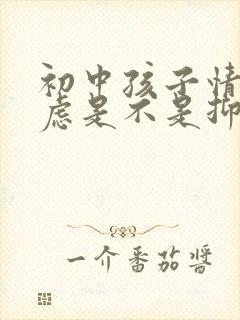 初中孩子情
虑是不是抑
一个番茄酱